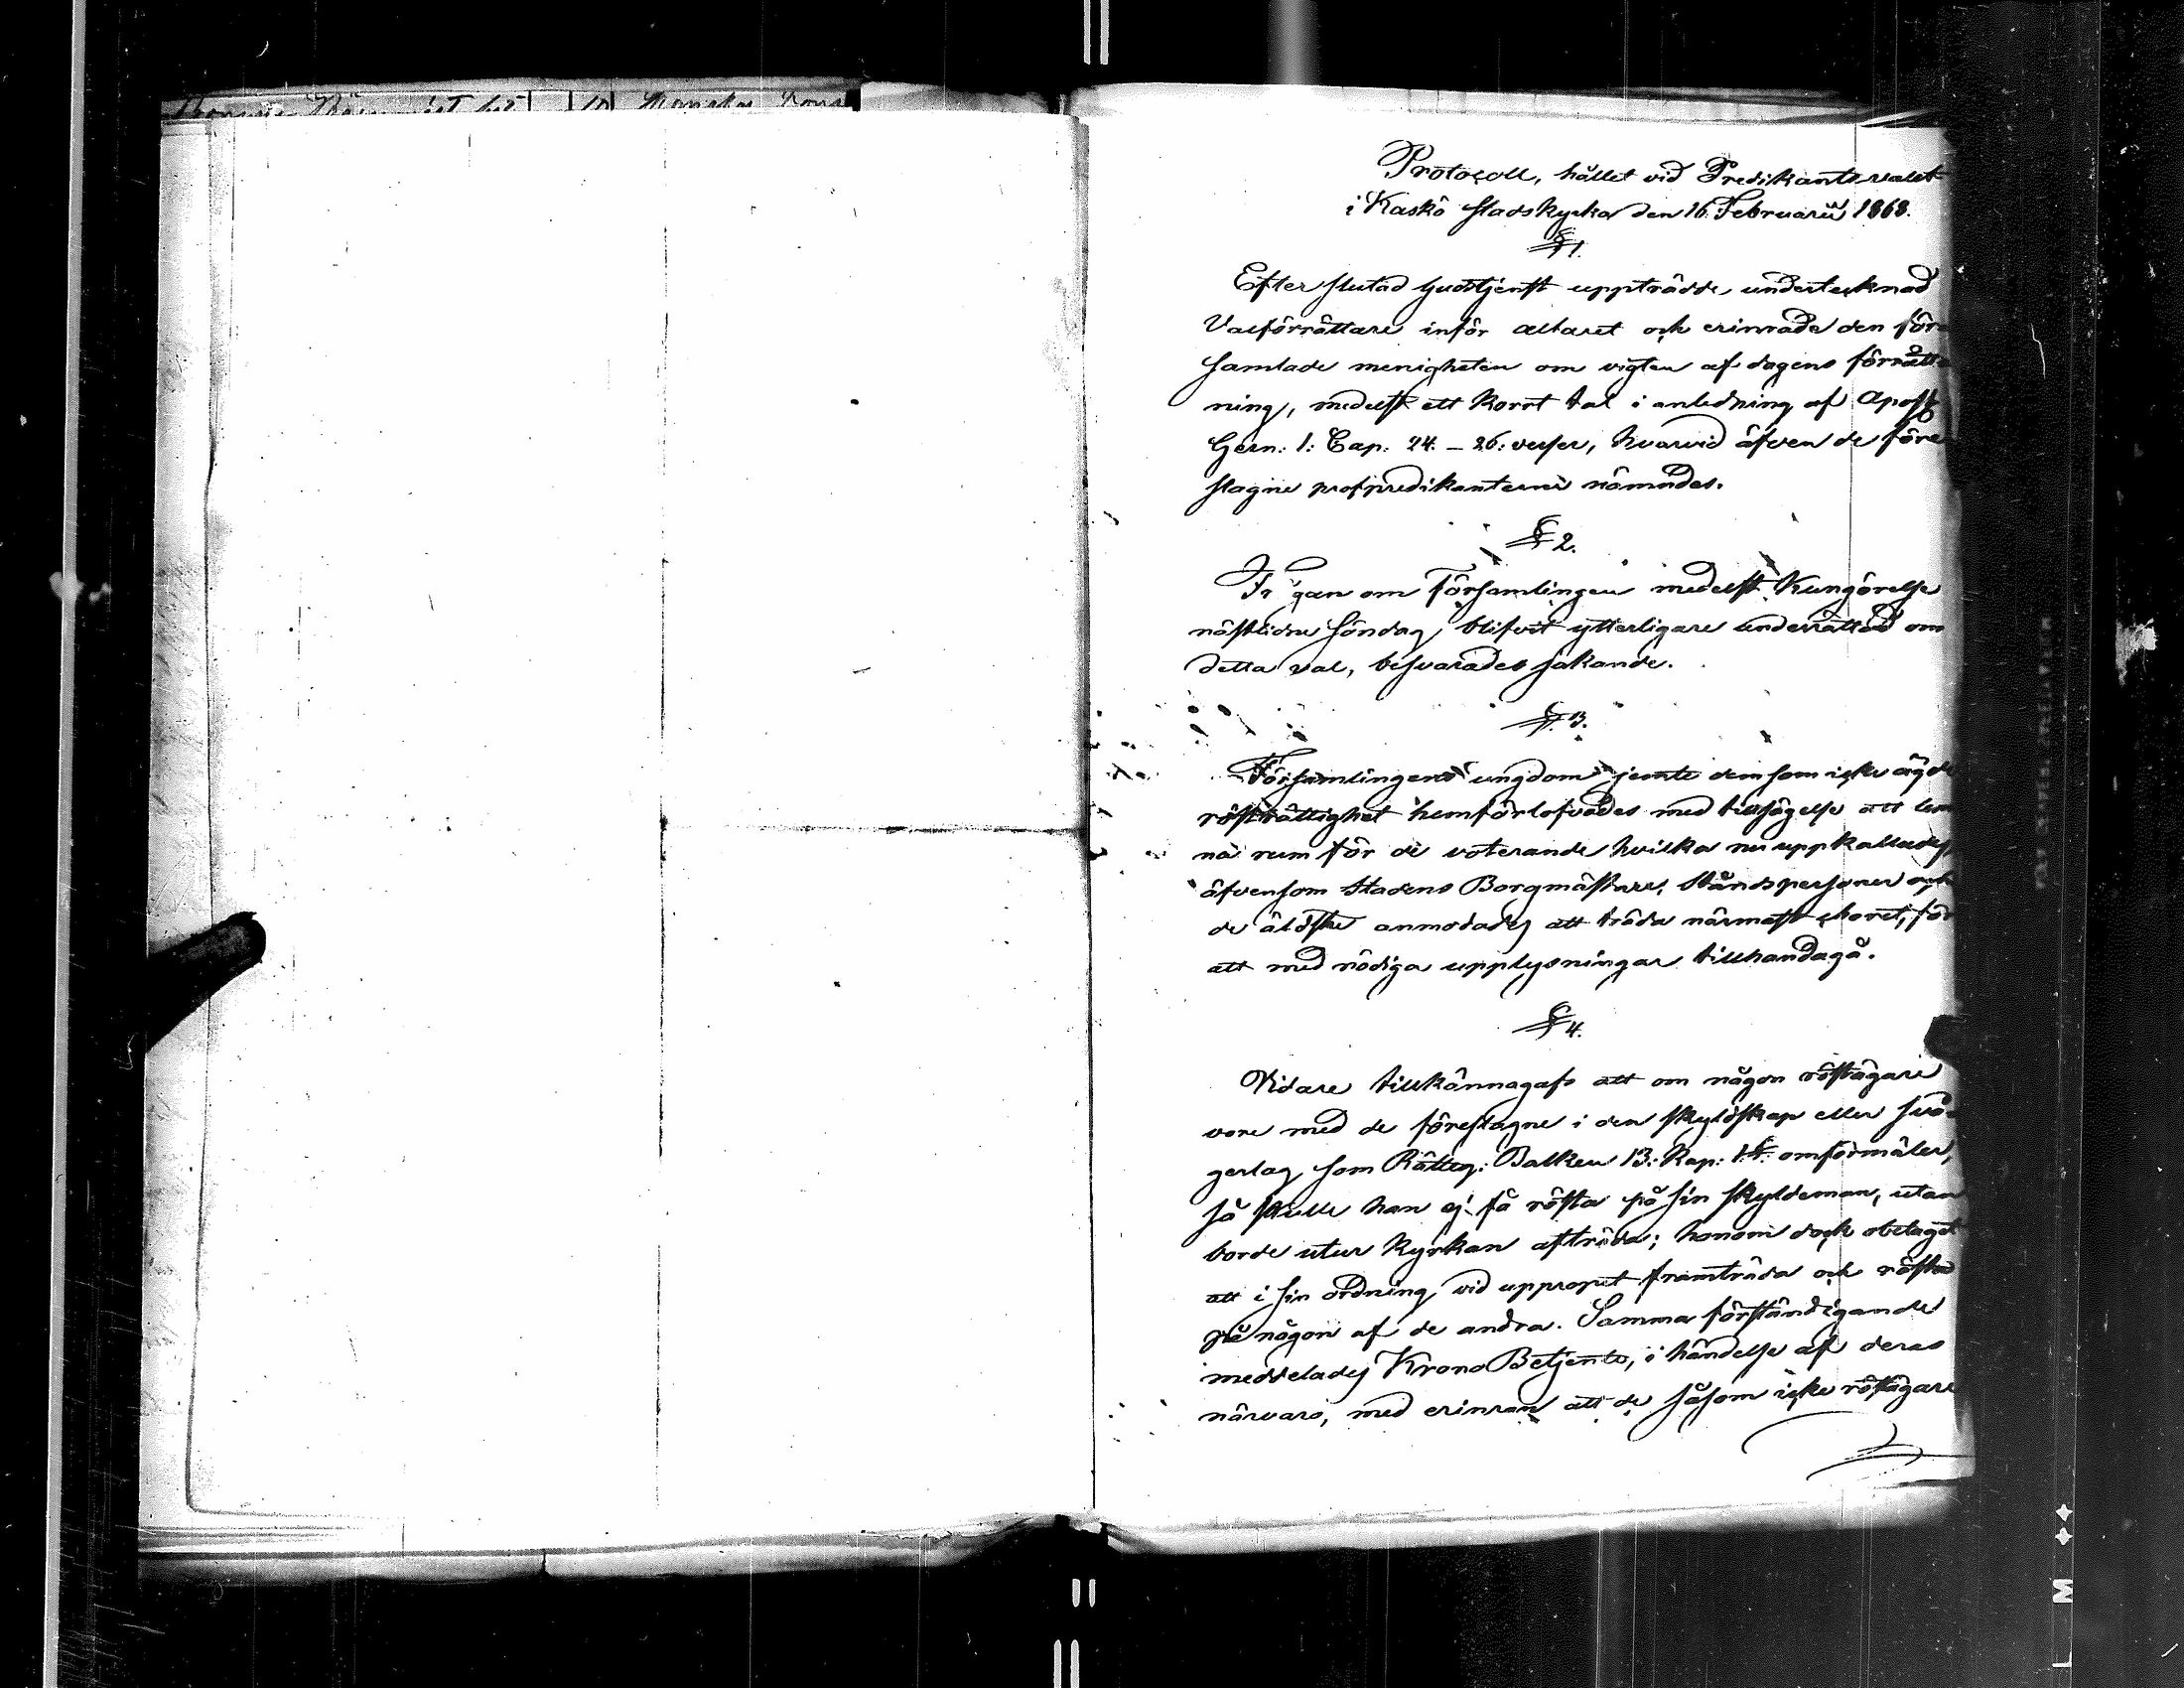 Protocoll, hållet vid Predikantsvalet
i Kaskö stadskyrka den 16 Februarii 1868.
§ 1.
Efter slutad gudstjenst uppträdde undertecknad
Valförrättare inför altaret och erinrade den för-
samlade menigheten om vigten af dagens förrätt-
ning, medelst ett kort tal i anledning af Apost
Gern: 1: Cap: 24. – 26: verser, hvarvid äfven de före-
slagne profpredikanterne nämndes.
§ 2.
Frågan om Församlingen medelst Kungörelse
nästlidne söndag blifvit ytterligare underrättad om
detta val, besvarades jakande.
§ 3.
Församlingens ungdom jemte dem som icke ägde
rösträttighet hemförlofvades med tillsägelse att lem
na rum för de voterande hvilka nu uppkallades,
äfvensom stadens Borgmästare, Ståndspersoner och
de äldste anmodades att träda närmast choret, för
att med nödiga upplysningar tillhandagå.
§ 4.
Vidare tillkännagafs att om någon röstägare
vore med de föreslagne i den skyldskap eller svå-
gerlag som Rätteg: Balken 13: Kap: 1 §: omförmäler,
så skulle han ej få rösta på sin skyldeman, utan
borde utur Kyrkan afträda; honom dock obetaget
att i sin ordning vid uppropet framträda och rösta
på någon af de andra. Samma förständigande
meddelades Krono Betjente, i händelse af deras
närvaro, med erinran att de såsom icke röstägare